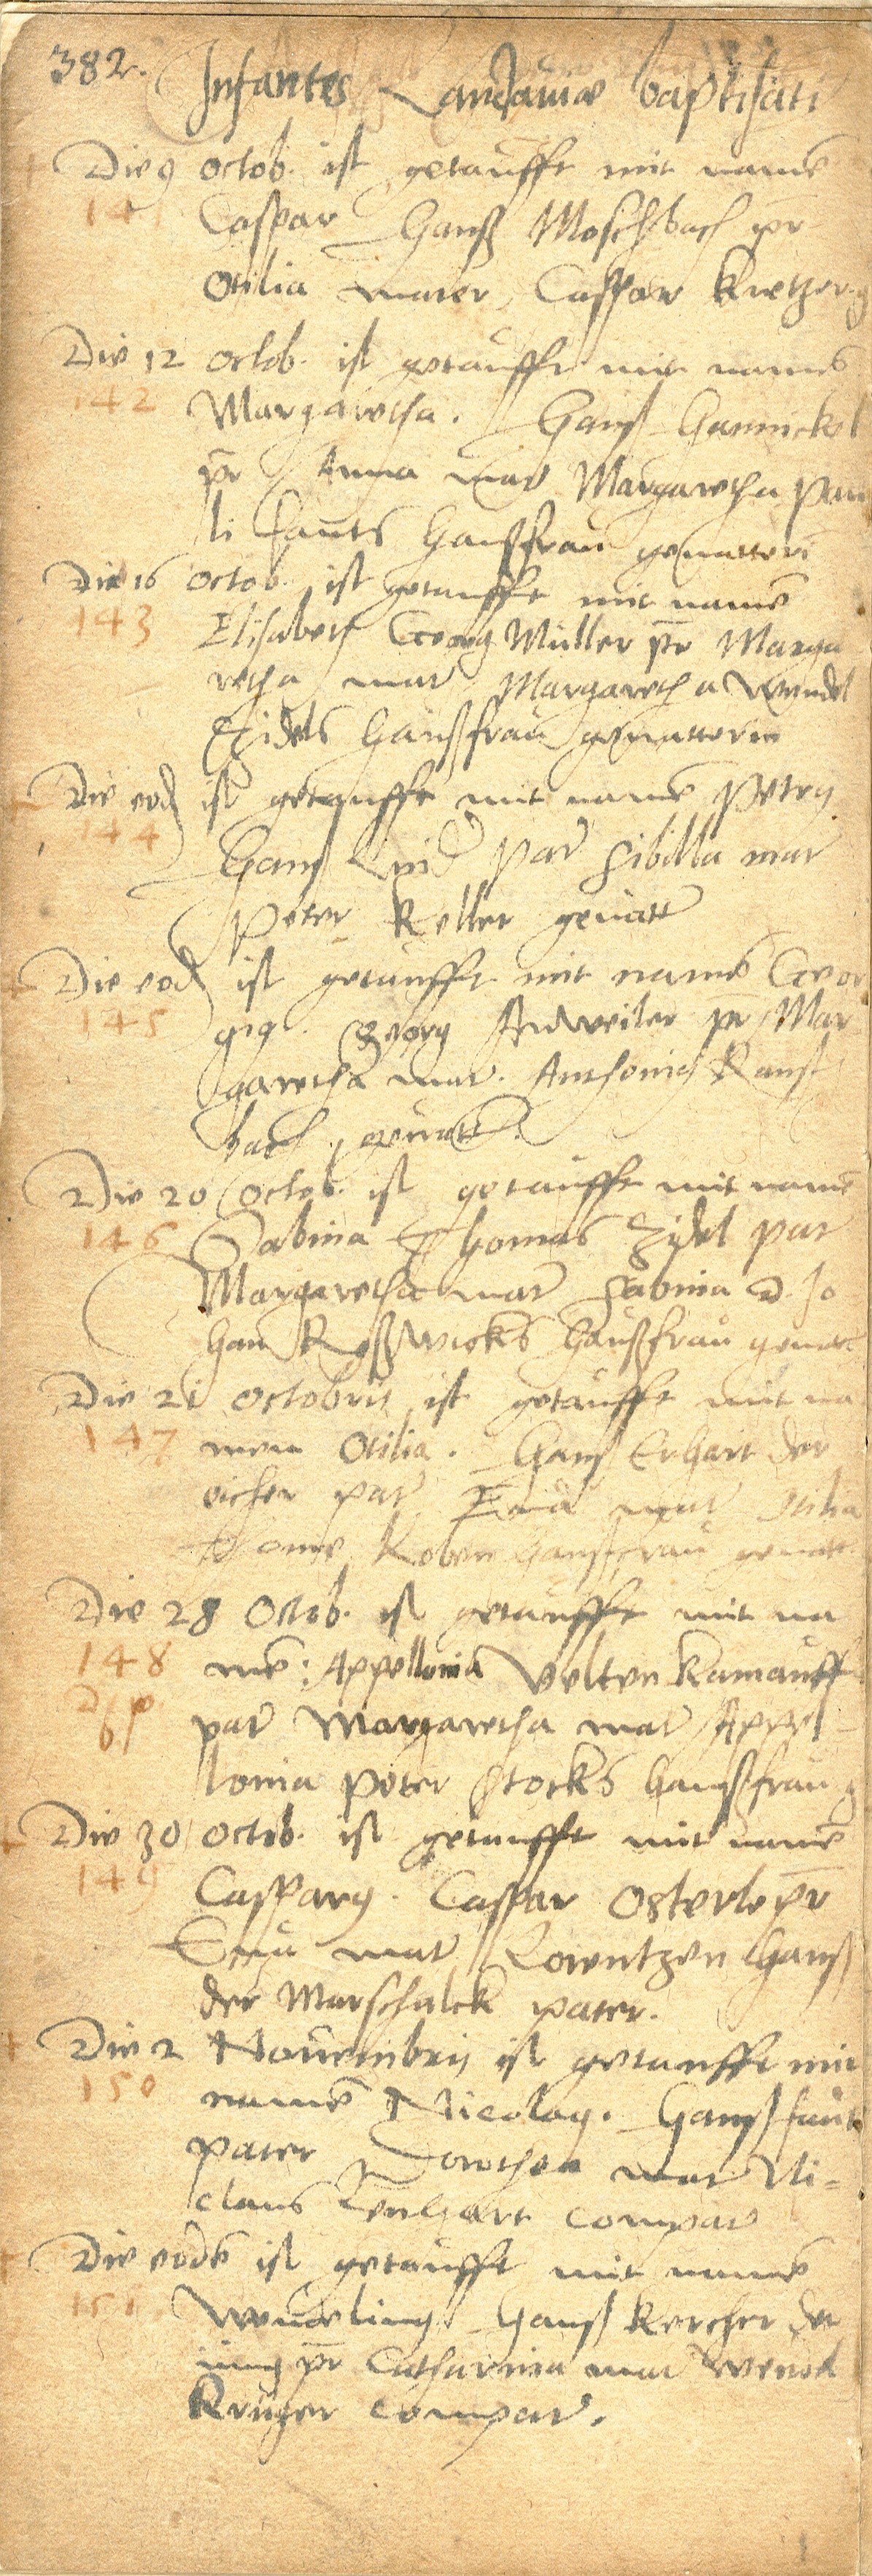 382.
Infantes Landauiæ baptisati
Die 9 octob. ist getaufft mit namē
141 Caspar Hanß Moschbach pr̄
Otilia mater, Caspar Kretzer g
Die 12 octob. ist getaufft mit namē
142 Margaretha. Hanß Hannickel
pr̄ Anna mat Margaretha Pau
li fauts haußfrau geuatteri
Die 16 octob. ist getaufft mit namē
143 Elisabeth Georg Müller pr̄ Marga
retha mat Margaretha Wendel
Zidels haußfrau geuatterin
Die eod ist getaufft mit namē Petrg
144 Hanß pat Sibilla mat
Peter Keller geuatt
Die eod ist getaufft mit namē Geor
145 gig. Georg Anweiler pr̄ Mar
garetha mat. Anthonig Ranst
bach geuatt.
Die 20 octob. ist getaufft mit namē
146 Sabina Thomas Zidel pat
Margaretha mat Sabina D. Jo
han haußfrau geuat
Die 21 octobris ist getaufft mit na
147 men Otilia. Hanß Erhart der
eicher pat Eua mat Otilia
Koben haußfrau geuatt
Die 28 Octob. ist getaufft mit na
148 mē: Appellonia Velten Kamauff
pat Margaretha mat Appel
lonia Peter Stocks haußfrau g
Die 30 octob. ist getaufft mit namē
149 Casparg. Caspar Osterle pr̄
Eua mat Lorentzen Hanß
der Marschalck pater.
Die 2 Nouembris ist getaufft mit
150 namē Nicolag. Hanß faut
pater Dorothea mat Ni=
claus Lenhart compat
Die eodē ist getaufft mit namē
151 Wendeling. Hanß Kercher der
jung pr̄ Catharina mat Wendel
Krüger compat.